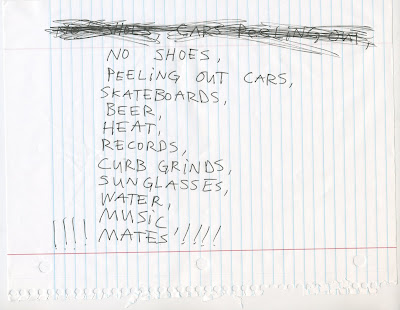 SHOES, CARS PEELING OUT,
NO SHOES,
PEELING OUT CARS,
SKATEBOARDS,
BEER,
HEAT,
RECORDS,
CURB GRINDS,
SUNGLASSES,
WATER,
MUSIC,
!!!! MATES !!!!